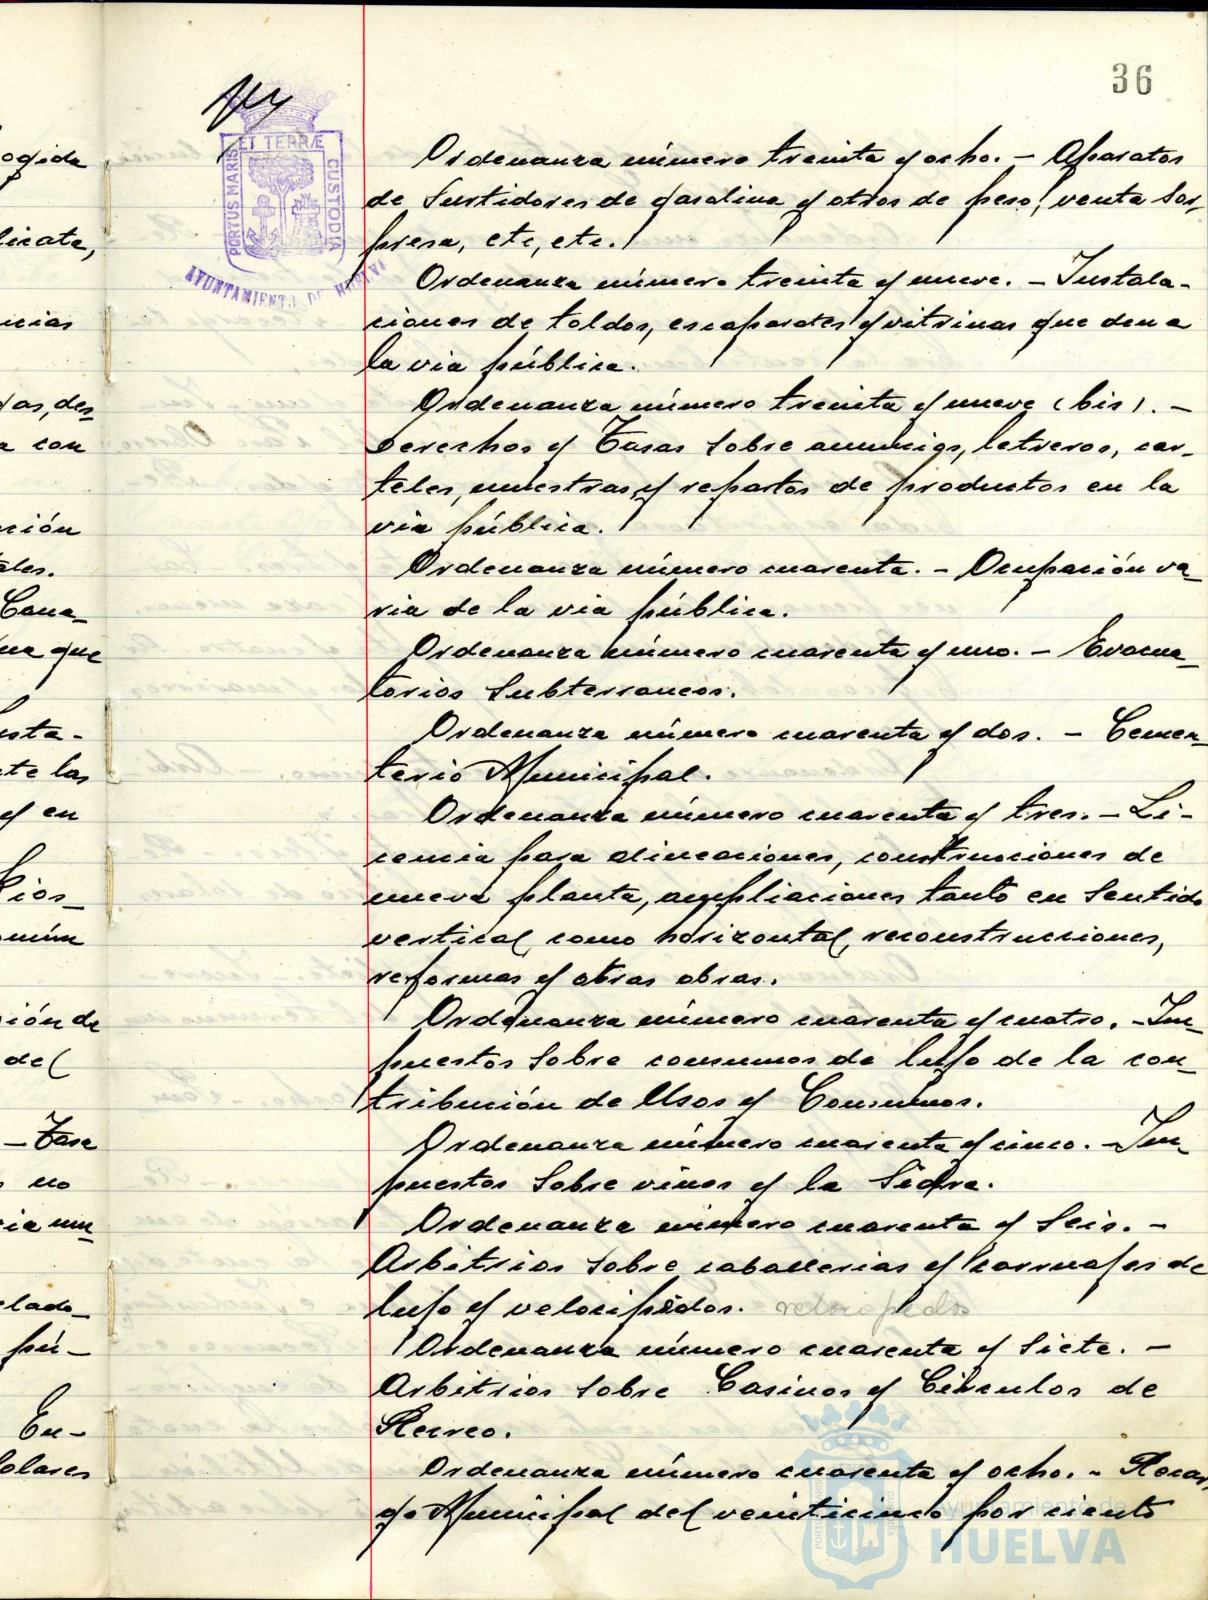 36
PORTUS MARIS ET TERRÆ CUSTODIA
AYUNTAMIENTO DE HUELVA
Ordenanza número treinta y ocho. - Aparatos
de Surtidores de gasolina y otros de peso, venta Sor-
presa, etc, etc.
Ordenanza número treinta y nueve. - Instala-
ciones de toldos, escaparates y vitrinas que den a
la via pública.
Ordenanza número treinta y nueve (bis). -
Derechos y Tasas sobre anuncios, letreros, car-
teles, muestras, y repartos de productos en la
via pública.
Ordenanza número cuarenta. - Ocupación va-
ria de la via pública.
Ordenanza número cuarenta y uno. - Evacua-
torios Subterraneos.
Ordenanza número cuarenta y dos. - Cemen-
terio Municipal.
Ordenanza número cuarenta y tres. - Li-
cencia para alineaciones, construcciones de
nueva planta, ampliaciones tanto en Sentido
vertical, como horizontal, reconstrucciones,
reformas y otras obras.
Ordenanza número cuarenta y cuatro. - Im-
puestos Sobre consumos de lujo de la con-
tribución de Usos y Consumos.
Ordenanza número cuarenta y cinco. - Im-
puestos Sobre vinos y la Sidra.
Ordenanza número cuarenta y Seis. -
Arbitrios Sobre caballerias y carruajes de
lujo y velocipedos. velocipedos
Ordenanza número cuarenta y Siete. -
Arbitrios Sobre Casinos y Circulos de
Recreo.
Ordenanza número cuarenta y ocho. - Recar-
go Municipal del veinticinco por ciento
Ayuntamiento de
HUELVA
ogida
licate,
ncias
das, des-
a con
ción
ales.
Cana-
ua que
usta-
te las
y en
Rios-
omún
ción de
del
- Tasa
s no
ria mu-
elado-
pú-
En-
Solares